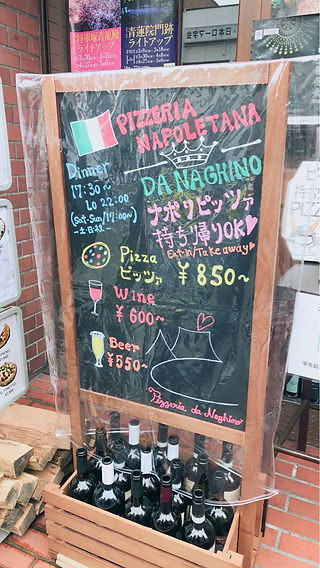 青蓮院門跡
ライトアップ
ライトアップ
PIZZERIA
NAPOLETANA
DA NAGHINO
Dinner
17:30〜
Lo 22:00
(Sat・Sun/17:00〜)
ー土・日・祝
ナポリピッツァ
持ち帰りOK♡
Eat-in/Take away♥
Pizza
ピッツァ
¥850〜
Wine
¥600〜
Beer
¥550〜
Pizzeria da Naghino